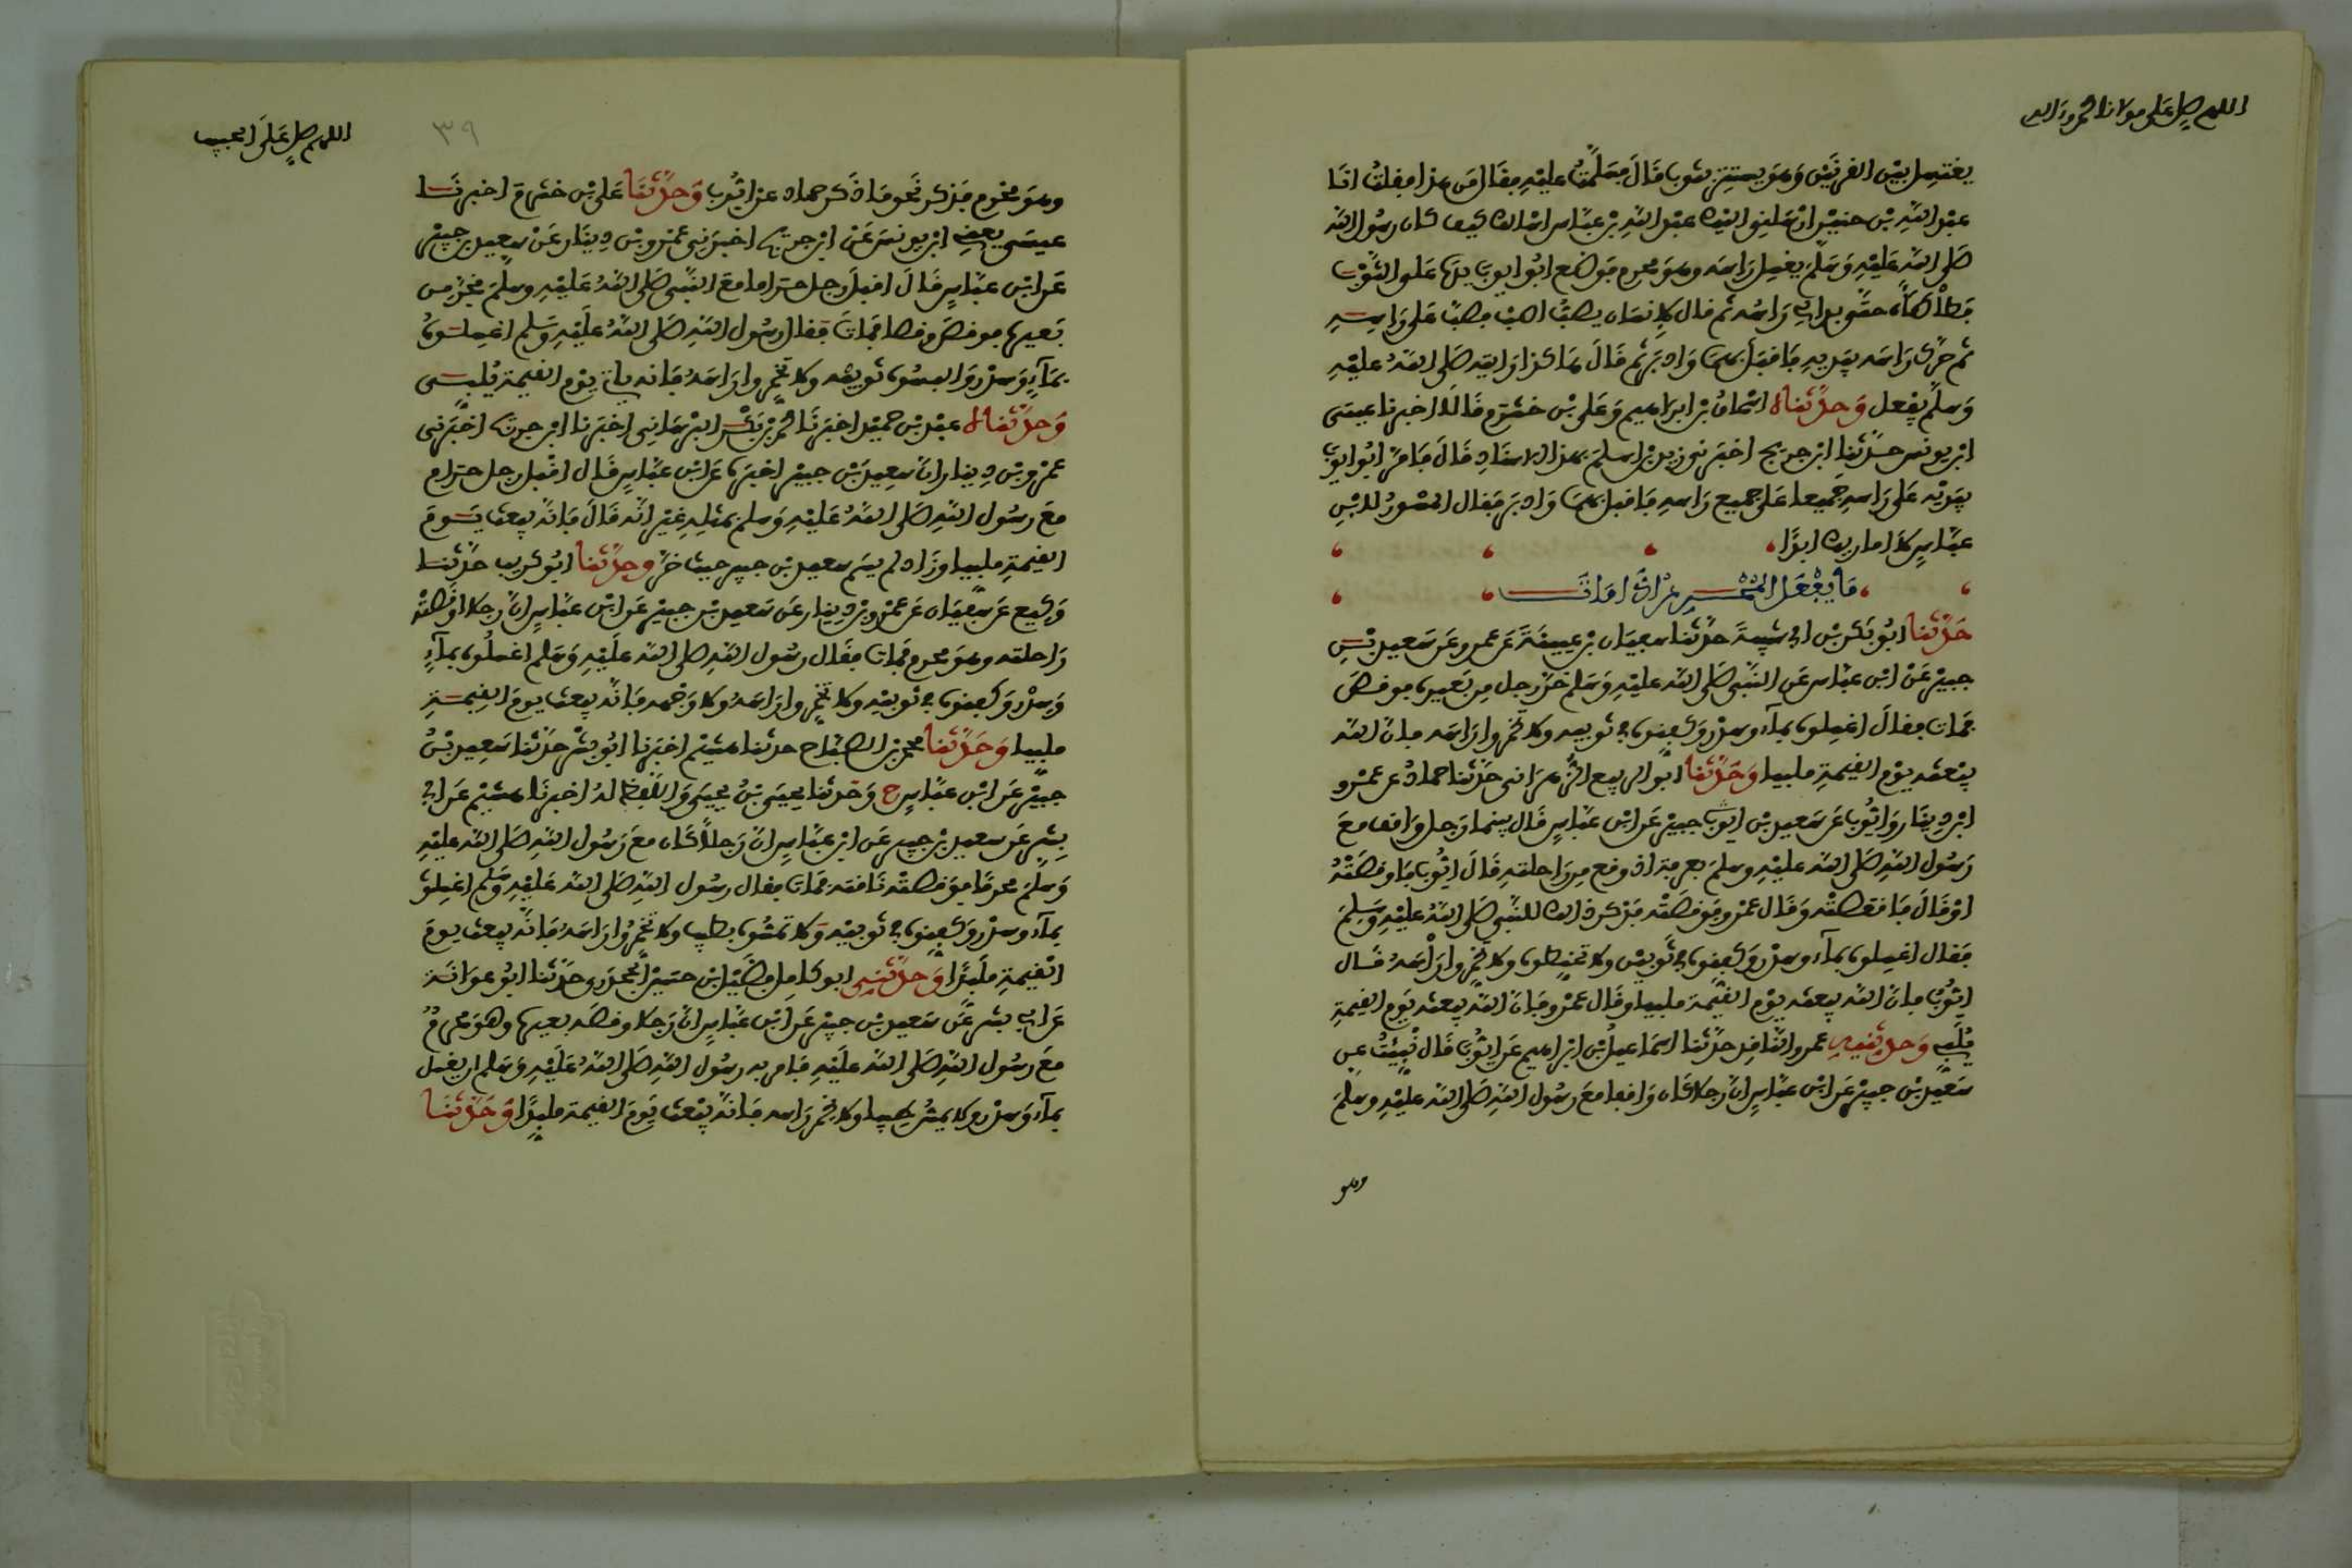 اللهم صل على مولانا محمد وءاله
يغتسل بين القرنين وهو يستتر بثوب قال فسلمت عليه فقال من هذا فقلت انا
عبد الله بن حنين ارسلني اليك عبد الله بن عباس اسالك كيف كان رسول الله
صلى الله عليه وسلم يغسل راسه وهو محرم فوضع ابو ايوب يده على الثوب
فطأطأه حتى بدا لي راسه ثم قال لانسان يصب اصبب فصب على راسه
ثم حرك راسه بيديه فاقبل بهما وادبر ثم قال هاكذا رايته صلى الله عليه
وسلم يفعل وحدثناه اسحاق بن ابراهيم وعلي بن خشرم قالا اخبرنا عيسى
ابن يونس حدثنا ابن جريج اخبرني زيد بن اسلم بهذا الاسناد قال فامر ابو ايوب
بيديه على راسه جميعا على جميع راسه فاقبل بهما وادبر فقال المسور لابن
عباس لا اماريك ابدا
ما يفعل المحرم اذا مات
حدثنا ابو بكر بن ابي شيبة حدثنا سفيان بن عيينة عن عمرو عن سعيد بن
جبير عن ابن عباس عن النبي صلى الله عليه وسلم خر رجل من بعيره فوقص
فمات فقال اغسلوه بماء وسدر وكفنوه في ثوبيه ولا تخمروا راسه فان الله
يبعثه يوم القيمة ملبيا وحدثنا ابو الربيع الزهراني حدثنا حماد عن عمرو
ابن دينار وايوب عن سعيد بن جبير عن ابن عباس قال بينما رجل واقف مع
رسول الله صلى الله عليه وسلم بعرفة اذ وقع من راحلته قال ايوب فاوقصته
او قال فاقعصته وقال عمرو فوقصته فذكر ذالك للنبي صلى الله عليه وسلم
فقال اغسلوه بماء وسدر وكفنوه في ثوبين ولا تحنطوه ولا تخمروا راسه قال
ايوب فان الله يبعثه يوم القيمة ملبيا وقال عمرو فان الله يبعثه يوم القيمة
يلبي وحدثنيه عمرو الناقد حدثنا اسماعيل بن ابراهيم عن ايوب قال نبئت عن
سعيد بن جبير عن ابن عباس ان رجلا كان واقفا مع رسول الله صلى الله عليه وسلم
وهو
اللهم صل على الحبيب
٣٩
وهو محرم فذكر نحو ما ذكر حماد عن ايوب وحدثنا علي بن خشرم اخبرنا
عيسى يعني ابن يونس عن ابن جريج اخبرني عمرو بن دينار عن سعيد بن جبير
عن ابن عباس قال اقبل رجل حراما مع النبي صلى الله عليه وسلم فخر من
بعيره فوقص وقصا فمات فقال رسول الله صلى الله عليه وسلم اغسلوه
بماء وسدر والبسوه ثوبيه ولا تخمروا راسه فانه ياتي يوم القيمة يلبي
وحدثناه عبد بن حميد اخبرنا محمد بن بكر البرساني اخبرنا ابن جريج اخبرني
عمرو بن دينار ان سعيد بن جبير اخبره عن ابن عباس قال اقبل رجل حرام
مع رسول الله صلى الله عليه وسلم بمثله غير انه قال فانه يبعث يوم
القيمة ملبيا وزاد لم يسم سعيد بن جبير حيث خر وحدثنا ابو كريب حدثنا
وكيع عن سفيان عن عمرو بن دينار عن سعيد بن جبير عن ابن عباس ان رجلا اوقصته
راحلته وهو محرم فمات فقال رسول الله صلى الله عليه وسلم اغسلوه بماء
وسدر وكفنوه في ثوبيه ولا تخمروا راسه ولا وجهه فانه يبعث يوم القيمة
ملبيا وحدثنا محمد بن الصباح حدثنا هشيم اخبرنا ابو بشر حدثنا سعيد بن
جبير عن ابن عباس ح وحدثنا يحيى بن يحيى واللفظ له اخبرنا هشيم عن ابي
بشر عن سعيد بن جبير عن ابن عباس ان رجلا كان مع رسول الله صلى الله عليه
وسلم محرما فوقصته ناقته فمات فقال رسول الله صلى الله عليه وسلم اغسلوه
بماء وسدر وكفنوه في ثوبيه ولا تمسوه بطيب ولا تخمروا راسه فانه يبعث يوم
القيمة ملبدا وحدثني ابو كامل فضيل بن حسين الجحدري حدثنا ابو عوانة
عن ابي بشر عن سعيد بن جبير عن ابن عباس ان رجلا وقصه بعيره وهو محرم
مع رسول الله صلى الله عليه فامر به رسول الله صلى الله عليه وسلم ان يغسل
بماء وسدر ولا يمس طيبا ولا يخمر راسه فانه يبعث يوم القيمة ملبدا وحدثنا